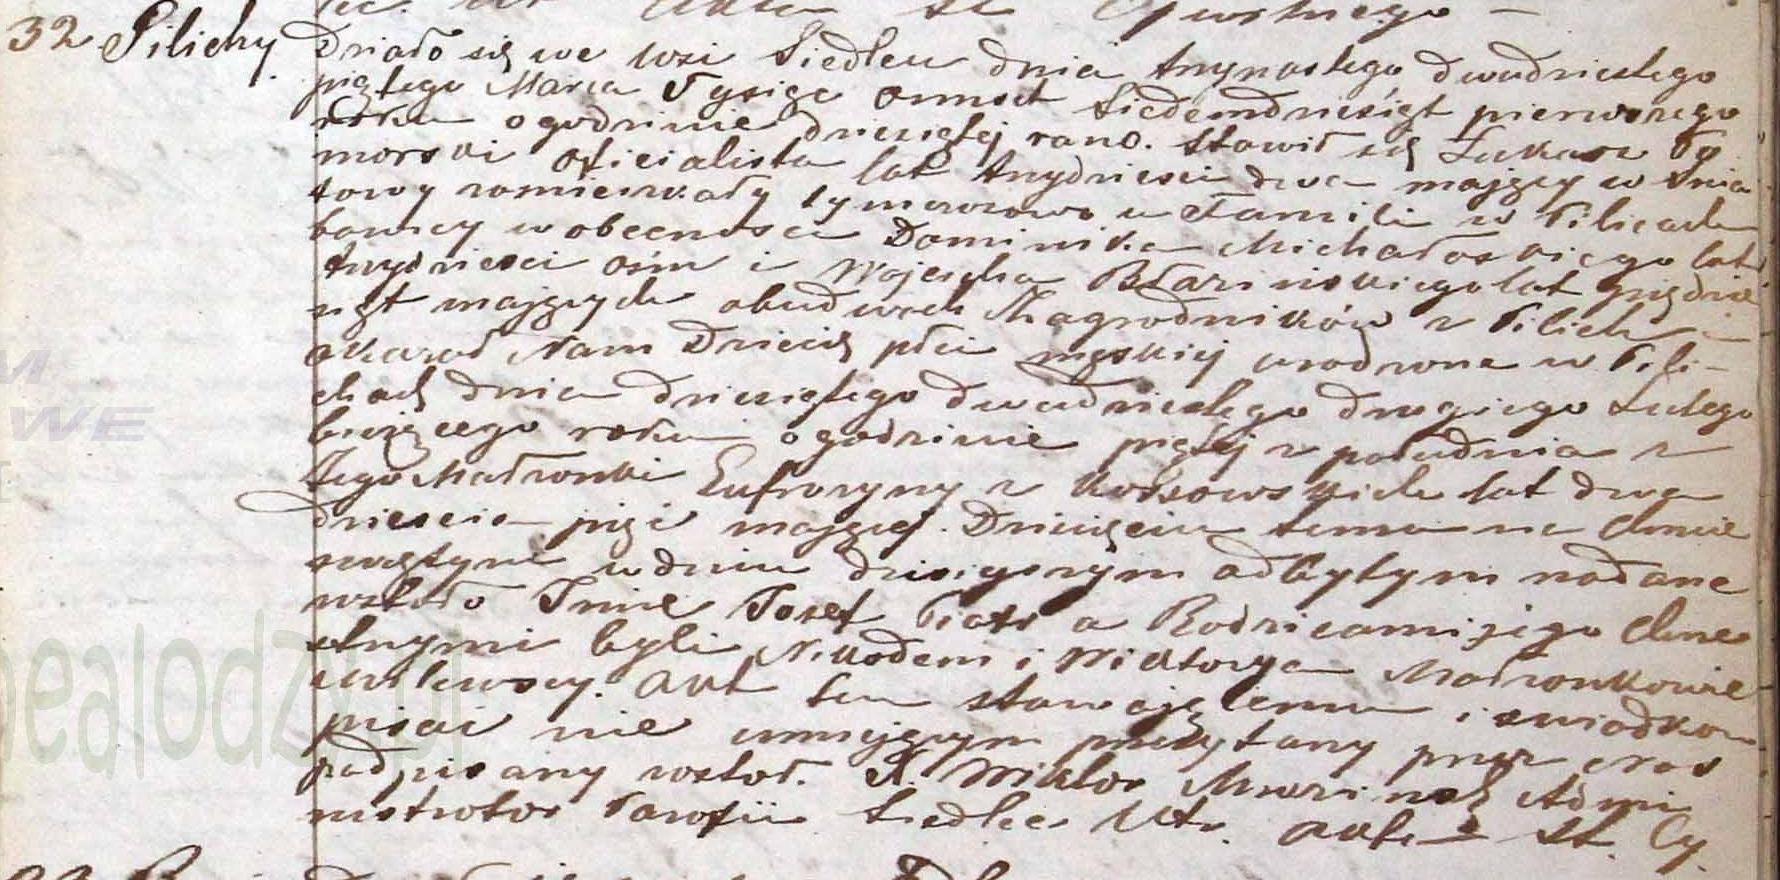 32 Pilichy
Działo się we wsi Siedlcu dnia trzynastego dwudziestego
piątego Marca Tysiąc ośmset siedemdziesiąt pierwszego
roku o godzinie dziesiątej rano. Stawił się Łukasz
morski oficialista lat trzydzieści dwa mający w
towy zamieszkały tymczasowo u familii w Pilicach
bawiący w obecności Dominika Michałoskiego lat
trzydzieści ośm i Wojciecha Błazińskiego lat pięćdzie
siąt mających obudwóch Zagrodników z Pilich
okazał Nam Dziecię płci męskiej urodzone w Pili-
chach dnia dziesiątego dwudziestego drugiego Lutego
bieżącego roku o godzinie piątej z południa z
Jego Małżonki Eufrozyny z lat dwa
dzieścia pięć mającej. Dziecięciu temu na chrzcie
świętym w dniu dzisiejszym odbytym nadane
zostało Imie Józef Piotr a Rodzicami jego chrze
stnymi byli Nikodem i Wiktorya Małżonkowie
Akt ten stawającemu i świadkom
pisać nie umiejącym przeczytany przez nas
podpisany został. X. Wiktor Admi
nistrator Parafii Siedlec Utr. akta St. Cy.